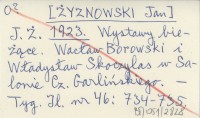 [ŻYZNOWSKI Jan]
J. Ż. 1923. Wystawy bie-
żące. Wacław Borowski i
Władysław Skoczylas w Sa-
lonie Cz. Garlińskiego. —
Tyg. Il. nr 46: 734-735.